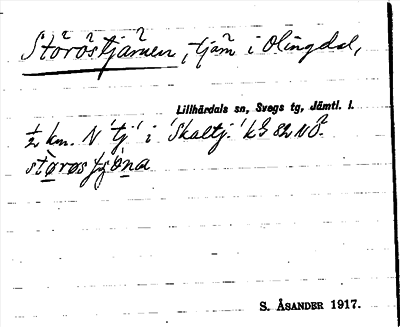 Storöstjärnen, tjärn i Olingdal,
Lillhärdals sn, Svegs tg, Jämtl. l.
½ km. N "tj" i "Skaltj."
størøs
S. ÅSANDER 1917.